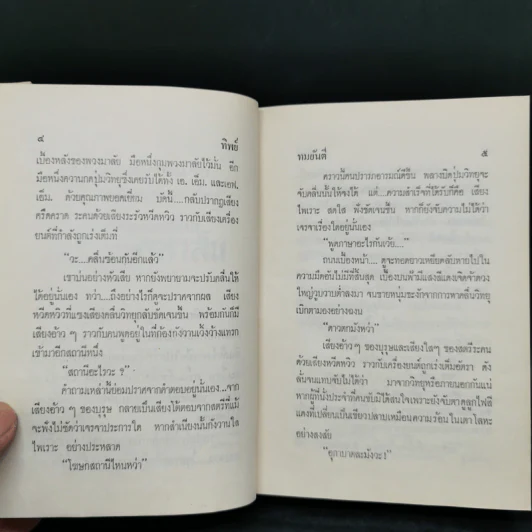 ๔ ทิพย์
เบื้องหลังของพวงมาลัย มือหนึ่งกุมพวงมาลัยไว้มั่น อีก
มือหนึ่งควานกดปุ่มวิทยุซึ่งเคยรับได้ทั้ง เอ. เอ็ม. และเอฟ.
เอ็ม. ด้วยคุณภาพยอดเยี่ยม บัดนี้....กลับปรากฏเสียง
ครืดคราด ระคนด้วยเสียงระรัวหวีดหวิว ราวกับเสียงเครื่อง
ยนต์ที่กำลังถูกเร่งเต็มที่
“วะ....คลื่นซ้อนกันอีกแล้ว”
เขาบ่นอย่างหัวเสีย หากยังพยายามจะปรับคลื่นให้
ได้อยู่นั่นเอง ทว่า....ถึงอย่างไรก็ดูจะปราศจากผล เสียง
หวีดหวิวที่แซงเสียงคลื่นวิทยุกลับชัดเจนขึ้น พร้อมกันก็มี
เสียงอ้าว ๆ ราวกับคนพูดอยู่ในที่ก้องกังวานเวิ้งว้างแทรก
เข้ามาอีกสถานีหนึ่ง
“สถานีอะไรวะ ?”
คำถามเหล่านี้ย่อมปราศจากคำตอบอยู่นั่นเอง...จาก
เสียงอ้าว ๆ ของบุรุษ กลายเป็นเสียงโต้ตอบจากสตรีที่แม้
จะฟังไม่ชัดว่าเจรจาประการใด หากสำเนียงนั้นกังวานใส
ไพเราะ อย่างประหลาด
“โฆษกสถานีไหนหว่า”
ทมยันตี ๕
คราวนี้คนปรารภอารมณ์ดีขึ้น พลางบิดปุ่มวิทยุจะ
จับคลื่นนั้นให้จงได้ แต่....ความสำเร็จที่ได้รับก็คือ เสียง
ไพเราะ สดใส ฟังชัดเจนขึ้น หากก็ยังจับความไม่ได้ว่า
เจรจาเรื่องใดอยู่นั่นเอง
“พูดภาษาอะไรกันเว้ย....”
ถนนเบื้องหน้า.... ดูจะทอดยาวเหยียดลับหายไปใน
ความมืดอันไม่มีที่สิ้นสุด เบื้องบนฟ้ามีแสงสีแดงเจิดจ้าดวง
ใหญ่วูบวาบต่ำลงมา จนชายหนุ่มชะงักจากการหาคลื่นวิทยุ
เบิกตามองอย่างงงงัน
“ดาวตกมั้งหว่า”
เสียงอ้าว ๆ ของบุรุษและเสียงใสๆ ของสตรีระคน
ด้วยเสียงหวีดหวิว ราวกับเครื่องยนต์ถูกเร่งเต็มอัตรา ดัง
ลั่นจนแทบจับไม่ได้ว่า มาจากวิทยุหรือภายนอกกันแน่
หากผู้ที่นั่งประจำที่คนขับมิได้สนใจเพราะยังจับตาดูลูกไฟสี
แดงที่เปลี่ยนเป็นเขียวปลาบเหมือนความร้อนในเตาโลหะ
อย่างสงสัย
“อุกาบาตละมังวะ!”